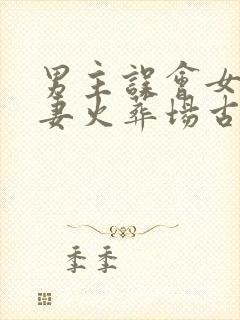 男主誤會女
妻火葬場古
季季